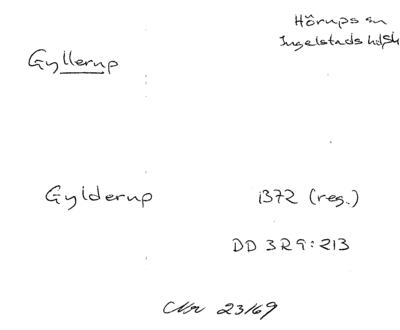 Hörups sn
Ingelstads hd, Sk
Gyllerup
Gylderup 1372 (reg.)
DD 3 R 9:213
Nr 23169